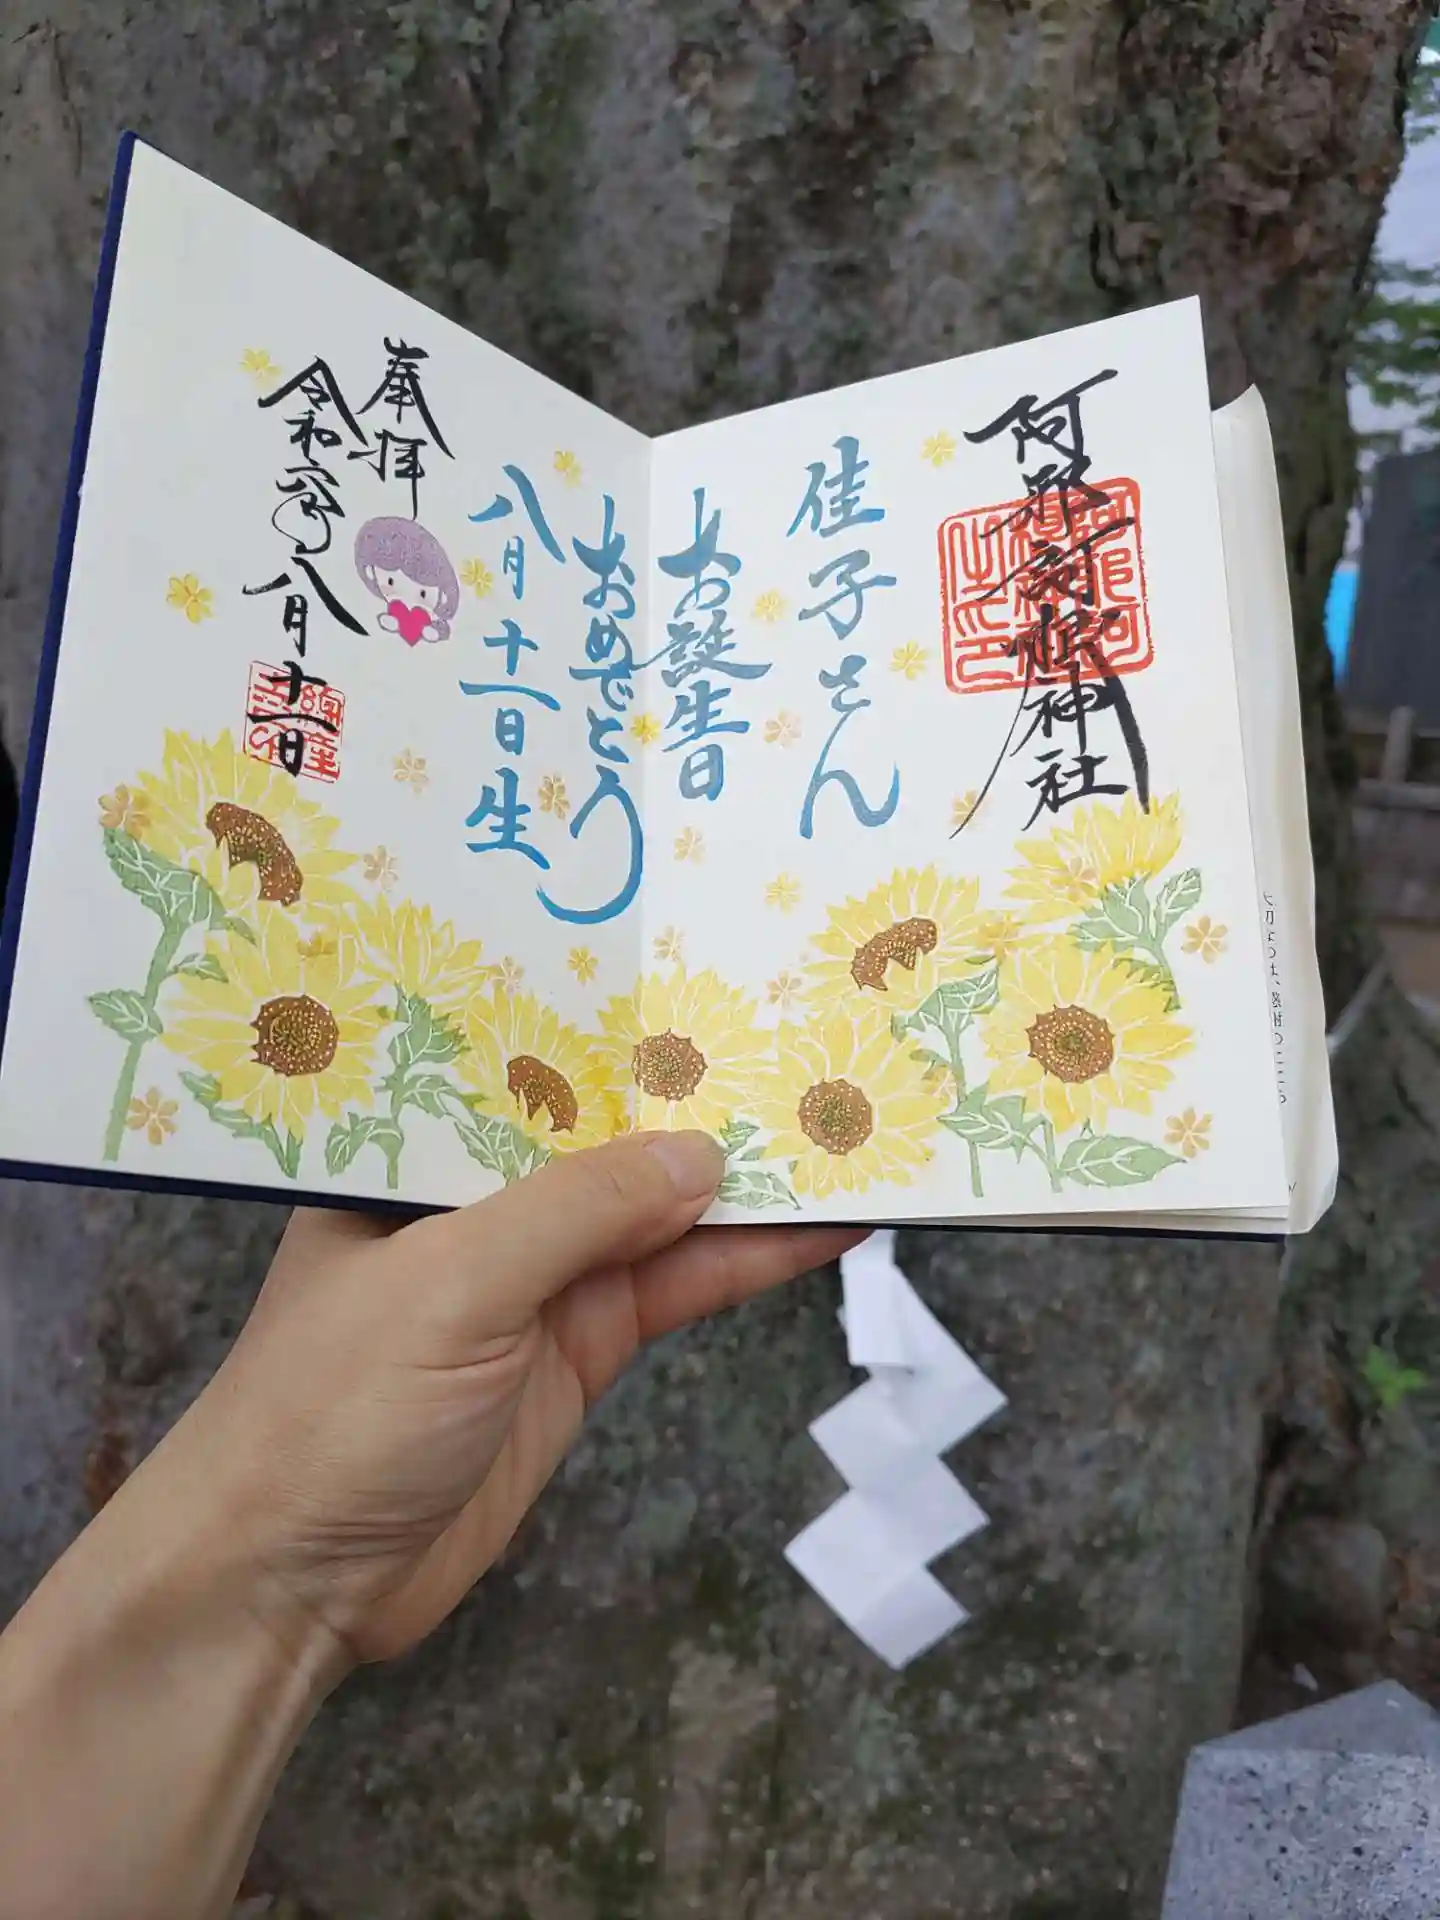 阿邪訶根神社
佳子さん
お誕生日
おめでとう
八月十一日生
奉拝
令和六年八月十一日